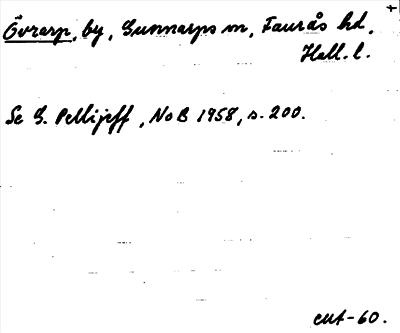 Övrarp, by, Gunnarps sn, Faurås hd,
Hall. l.
Se G. Pellijeff, NoB 1958, s. 200.
-60.